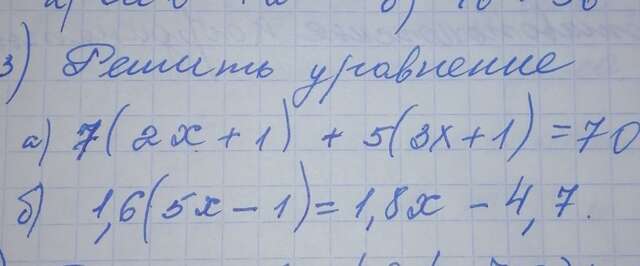 3) Решить уравнение
а) 7(2х + 1) + 5(3х + 1) = 70
б) 1,6(5х - 1) = 1,8х - 4,7.